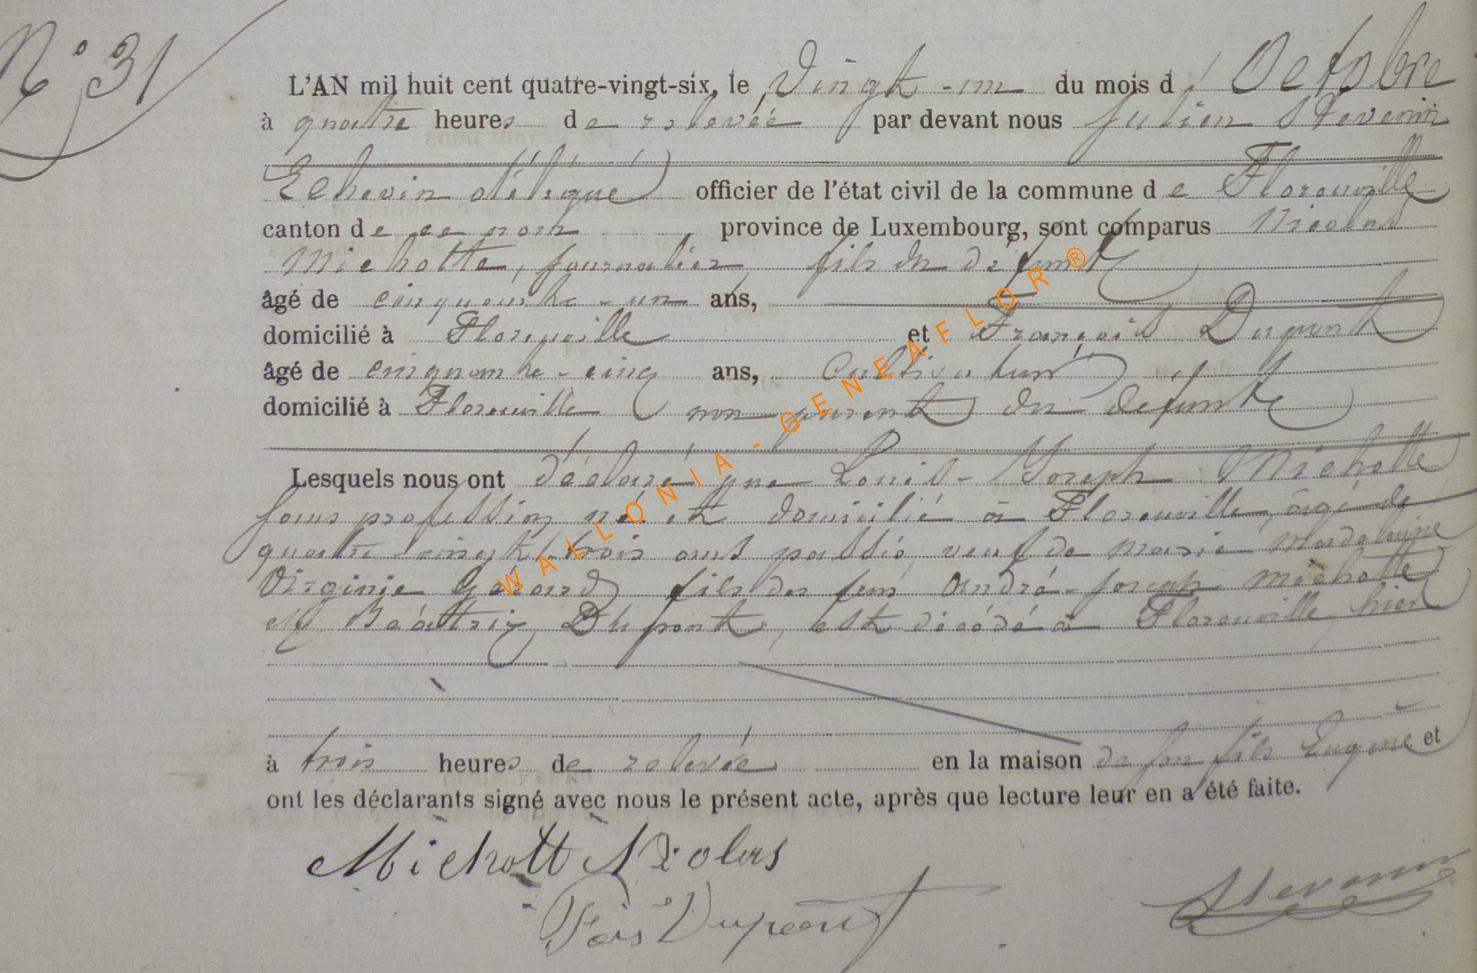 N° 31
L'AN mil huit cent quatre-vingt-six, le Vingt-un du mois d'Octobre
à quatre heures de relevée par devant nous Julien Stevenin
Echevin délégué officier de l'état civil de la commune de Florenville
canton de ce nom province de Luxembourg, sont comparus Nicolas
Michotte, journalier, fils du défunt
âgé de cinquante-un ans,
domicilié à Florenville et François Dupont
âgé de cinquante-cinq ans, Cultivateur
domicilié à Florenville non parent du défunt
Lesquels nous ont déclaré que Louis-Joseph Michotte
sans profession, né et domicilié à Florenville, âgé de
quatre vingt-trois ans passés, veuf de Marie Madelaine
Virginie Gérard, fils des feus André-Joseph Michotte
et Béatrix Dupont, est décédé à Florenville, hier
à trois heures de relevée en la maison de son fils Eugène et
ont les déclarants signé avec nous le présent acte, après que lecture leur en a été faite.
Michott Nicolas
Fois Dupont
Stevenin
WALLONIA - GENEAFLOR®